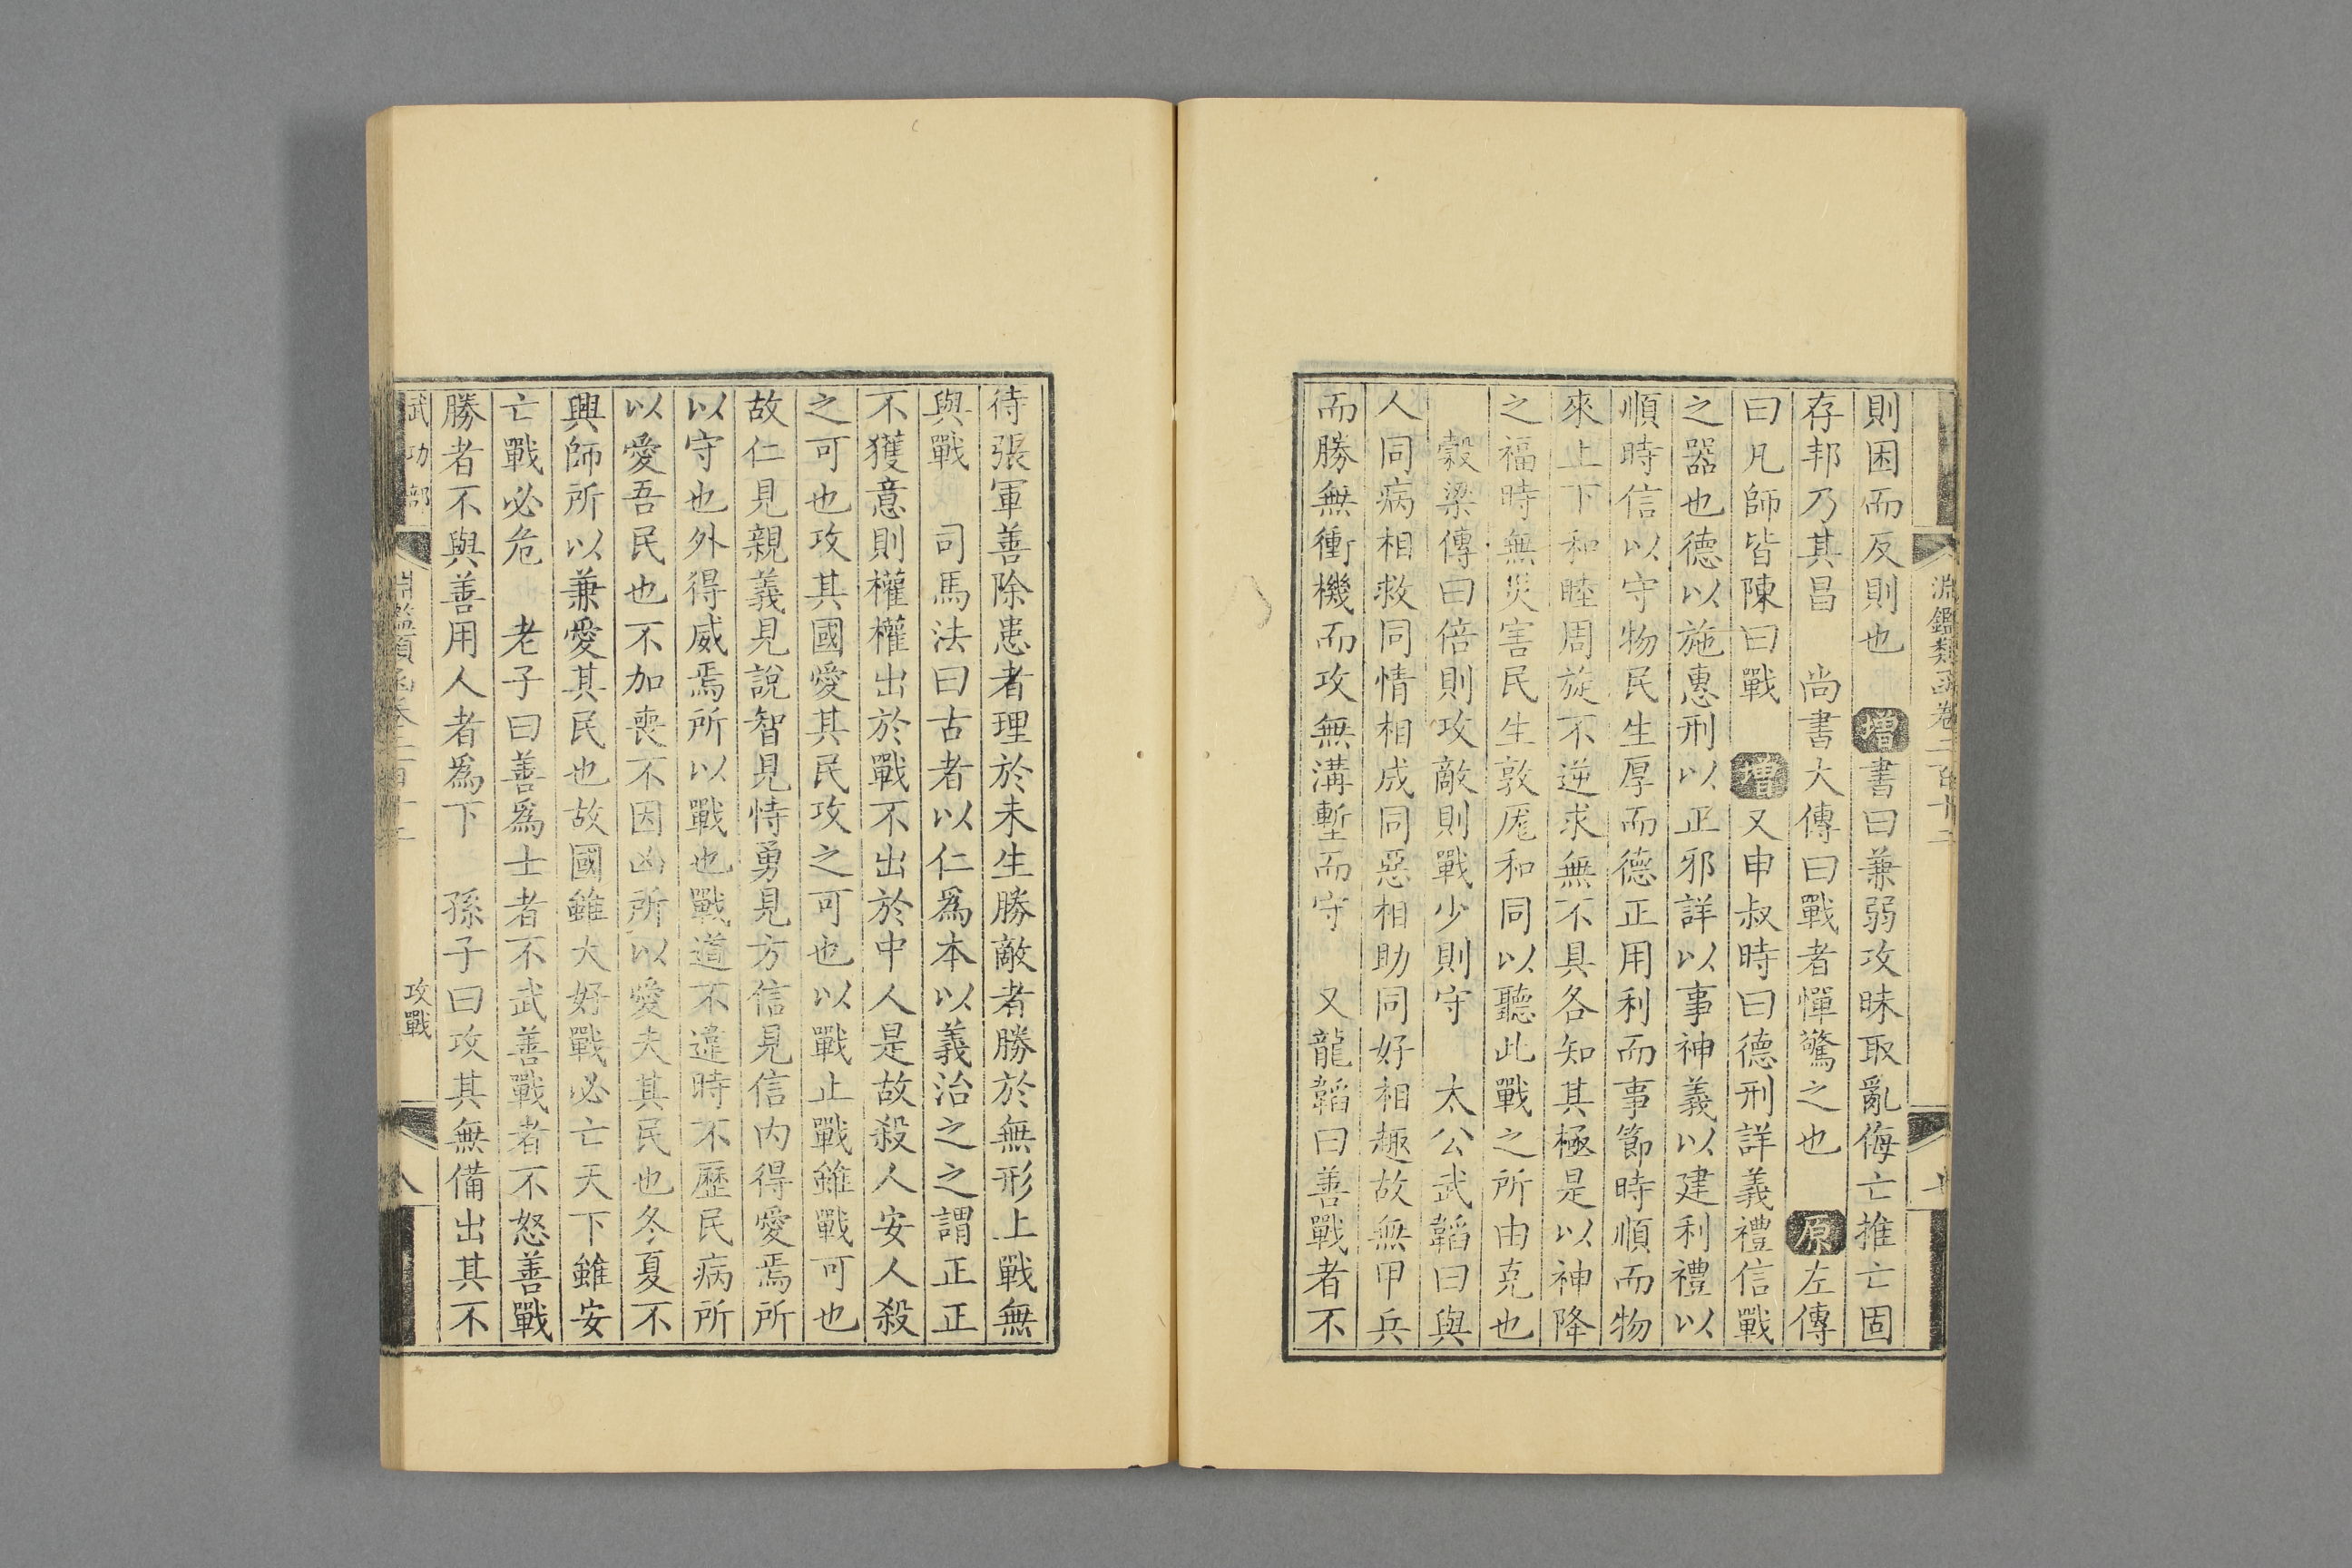 淵鑑類函卷二百十二
則困而反則也　增書曰兼弱攻昧取亂侮亡推亡固
存邦乃其昌　尚書大傳曰戰者憚驚之也　原左傳
曰凡師皆陳曰戰　增又申叔時曰德刑詳義禮信戰
之器也德以施惠刑以正邪詳以事神義以建利禮以
順時信以守物民生厚而德正用利而事節時順而物
來上下和睦周旋不逆求無不具各知其極是以神降
之福時無災害民生敦厖和同以聽此戰之所由克也
穀梁傳曰倍則攻敵則戰少則守　太公武韜曰與
人同病相救同情相成同惡相助同好相趣故無甲兵
而勝無衝機而攻無溝塹而守　又龍韜曰善戰者不
待張軍善除患者理於未生勝敵者勝於無形上戰無
與戰　司馬法曰古者以仁爲本以義治之之謂正正
不獲意則權權出於戰不出於中人是故殺人安人殺
之可也攻其國愛其民攻之可也以戰止戰雖戰可也
故仁見親義見說智見恃勇見方信見信內得愛焉所
以守也外得威焉所以戰也戰道不違時不歷民病所
以愛吾民也不加喪不因凶所以愛夫其民也冬夏不
興師所以兼愛其民也故國雖大好戰必亡天下雖安
亡戰必危　老子曰善爲士者不武善戰者不怒善戰
勝者不與善用人者爲下　孫子曰攻其無備出其不
武功部　淵鑑類函卷二百十二　攻戰　八